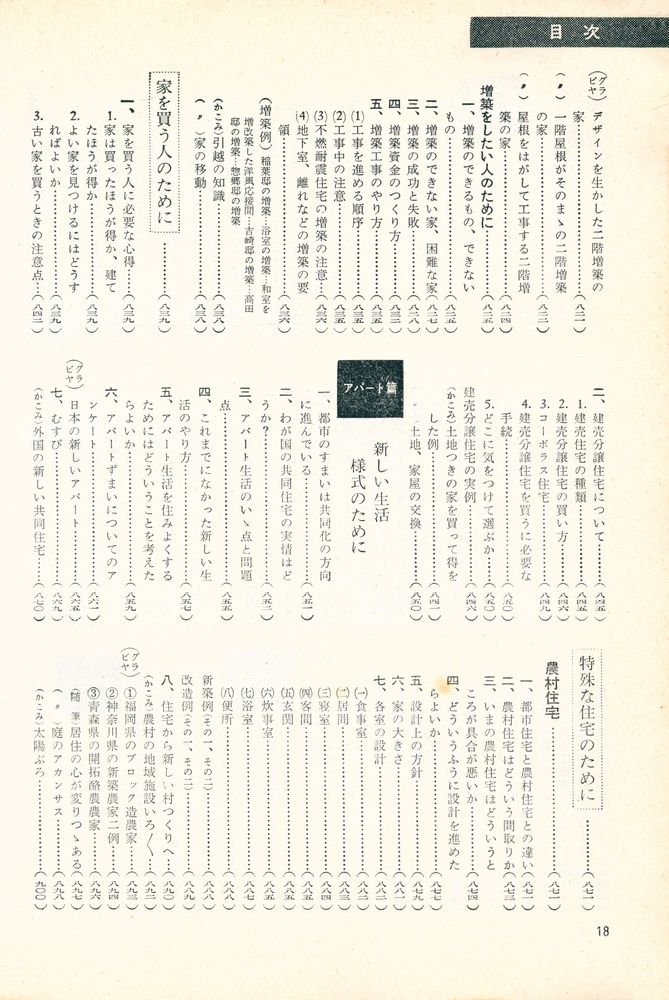 目次
(グラビヤ) デザインを生かした二階増築の
家……(八二一)
(〃) 一階屋根がそのまゝの二階増築
の家……(八二二)
(〃) 屋根をはがして工事する二階増
築の家……(八二四)
増築をしたい人のために……(八二五)
一、増築のできるもの、できない
もの……(八二五)
二、増築のできない家、困難な家(八二七)
三、増築の成功と失敗……(八二八)
四、増築資金のつくり方……(八三三)
五、増築工事のやり方……(八三五)
(1)工事を進める順序……(八三五)
(2)工事中の注意……(八三五)
(3)不燃耐震住宅の増築の注意…(八三六)
(4)地下室、離れなどの増築の要
領……(八三六)
(増築例) 稲葉邸の増築…浴室の増築…和室を
増改築した洋風応接間…吉崎邸の増築…高田
邸の増築…惣郷邸の増築
(かこみ)引越の知識……(八三八)
(〃)家の移動……(八三八)
家を買う人のために……(八三九)
一、家を買う人に必要な心得……(八三九)
1.家は買ったほうが得か、建て
たほうが得か……(八三九)
2.よい家を見つけるにはどうす
ればよいか……(八三九)
3.古い家を買うときの注意点…(八四二)
二、建売分譲住宅について……(八四五)
1.建売住宅の種類……(八四五)
2.建売分譲住宅の買い方……(八四六)
3.コーポラス住宅……(八四九)
4.建売分譲住宅を買うに必要な
手続……(八五〇)
5.どこに気をつけて選ぶか……(八五〇)
建売分譲住宅の実例……(八四六)
(かこみ)土地つきの家を買って得を
した例……(八四一)
〃 土地、家屋の交換……(八五〇)
アパート篇
新しい生活
様式のために
一、都市のすまいは共同化の方向
に進んでいる……(八五一)
二、わが国の共同住宅の実情はど
うか?……(八五二)
三、アパート生活のいゝ点と問題
点……(八五五)
四、これまでになかった新しい生
活のやり方……(八五七)
五、アパート生活を住みよくする
ためにはどういうことを考えた
らよいか……(八五九)
六、アパートずまいについてのア
ンケート……(八六一)
(グラビヤ) 日本の新しいアパート……(八六五)
七、むすび……(八六九)
(かこみ)外国の新しい共同住宅……(八七〇)
特殊な住宅のために……(八七一)
農村住宅……(八七一)
一、都市住宅と農村住宅との違い(八七一)
二、農村住宅はどういう間取りか(八七三)
三、いまの農村住宅はどういうと
ころが具合が悪いか……(八七四)
四、どういうふうに設計を進めた
らよいか……(八七七)
五、設計上の方針……(八七九)
六、家の大きさ……(八八一)
七、各室の設計……(八八二)
(一)食事室……(八八二)
(二)居間……(八八三)
(三)寝室……(八八四)
(四)客間……(八八五)
(五)玄関……(八八五)
(六)炊事室……(八八五)
(七)浴室……(八八七)
(八)便所……(八八八)
新築例(その一、その二)……(八八八)
改造例(その一、その二)……(八八九)
八、住宅から新しい村つくりへ…(八九〇)
(かこみ)農村の地域施設いろ〳〵…(八九二)
(グラビヤ) ①福岡県のブロック造農家……(八九三)
②神奈川県の新築農家二例……(八九四)
③青森県の開拓酪農農家……(八九六)
(随筆)居住の心が変りつゝある(八九七)
(〃)庭のアカンサス……(八九八)
(かこみ)太陽ぶろ……(九〇〇)
18